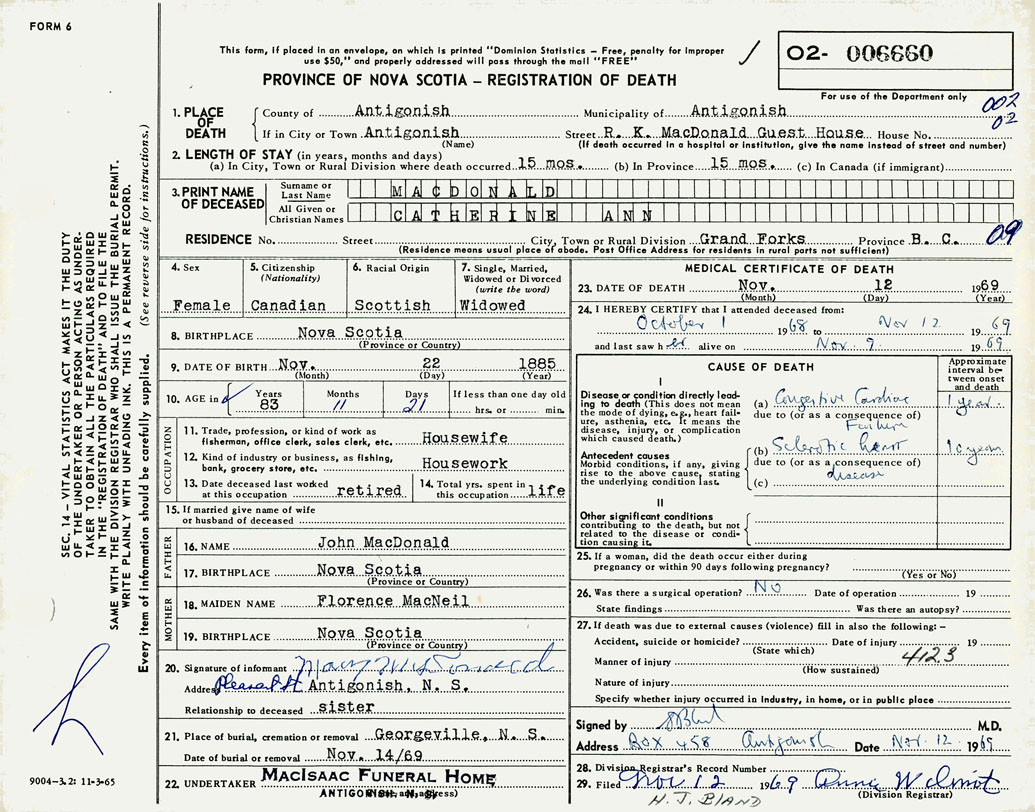 FORM 6
This form, if placed in an envelope, on which is printed "Dominion Statistics – Free, penalty for improper
use $50," and properly addressed will pass through the mail "FREE"
02- 006660
PROVINCE OF NOVA SCOTIA – REGISTRATION OF DEATH
For use of the Department only
002
02
1. PLACE OF DEATH
County of Antigonish Municipality of Antigonish
If in City or Town Antigonish Street R. K. MacDonald Guest House House No.
(Name) (If death occurred in a hospital or institution, give the name instead of street and number)
2. LENGTH OF STAY (in years, months and days)
(a) In City, Town or Rural Division where death occurred 15 mos. (b) In Province 15 mos. (c) In Canada (if immigrant)
3. PRINT NAME OF DECEASED
Surname or Last Name MACDONALD
All Given or Christian Names CATHERINE ANN
RESIDENCE No. Street City, Town or Rural Division Grand Forks Province B. C. 09
(Residence means usual place of abode. Post Office Address for residents in rural parts not sufficient)
4. Sex
Female
5. Citizenship
(Nationality)
Canadian
6. Racial Origin
Scottish
7. Single, Married,
Widowed or Divorced
(write the word)
Widowed
8. BIRTHPLACE Nova Scotia
(Province or Country)
9. DATE OF BIRTH Nov. 22 1885
(Month) (Day) (Year)
10. AGE in Years 83 Months 11 Days 21 If less than one day old
hrs. or min.
OCCUPATION
11. Trade, profession, or kind of work as
fisherman, office clerk, sales clerk, etc. Housewife
12. Kind of industry or business, as fishing,
bank, grocery store, etc. Housework
13. Date deceased last worked
at this occupation retired
14. Total yrs. spent in
this occupation life
15. If married give name of wife
or husband of deceased
FATHER
16. NAME John MacDonald
17. BIRTHPLACE Nova Scotia
(Province or Country)
MOTHER
18. MAIDEN NAME Florence MacNeil
19. BIRTHPLACE Nova Scotia
(Province or Country)
20. Signature of informant Mary
Address Pleasant St Antigonish, N. S.
Relationship to deceased sister
21. Place of burial, cremation or removal Georgeville, N. S.
Date of burial or removal Nov. 14/69
22. UNDERTAKER MacIsaac Funeral Home
ANTIGONISH, N. S.
MEDICAL CERTIFICATE OF DEATH
23. DATE OF DEATH Nov. 12 1969
(Month) (Day) (Year)
24. I HEREBY CERTIFY that I attended deceased from:
October 1 1968 to Nov 12 1969
and last saw her alive on Nov. 9 1969
CAUSE OF DEATH
Approximate
interval be-
tween onset
and death
I
Disease or condition directly lead-
ing to death (This does not mean
the mode of dying, e.g., heart fail-
ure, asthenia, etc. It means the
disease, injury, or complication
which caused death.)
(a) Congestive Cardiac 1 year.
due to (or as a consequence of)
Failure
Antecedent causes
Morbid conditions, if any, giving
rise to the above cause, stating
the underlying condition last.
(b) Sclerotic heart 10 years
due to (or as a consequence of)
disease
(c)
II
Other significant conditions
contributing to the death, but not
related to the disease or condi-
tion causing it.
25. If a woman, did the death occur either during
pregnancy or within 90 days following pregnancy?
(Yes or No)
26. Was there a surgical operation? No Date of operation 19
State findings Was there an autopsy?
27. If death was due to external causes (violence) fill in also the following: –
Accident, suicide or homicide? Date of injury 19
(State which)
4123
Manner of injury
(How sustained)
Nature of injury
Specify whether injury occurred in Industry, in home, or in public place
Signed by M.D.
Address Box 458 Antigonish Date Nov. 12 1969
28. Division Registrar's Record Number
29. Filed Nov 12 1969 Anne Wilmot
(Division Registrar)
H. J. BLAND
SEC. 14 – VITAL STATISTICS ACT MAKES IT THE DUTY
OF THE UNDERTAKER OR PERSON ACTING AS UNDER-
TAKER TO OBTAIN ALL THE PARTICULARS REQUIRED
IN THE "REGISTRATION OF DEATH" AND TO FILE THE
SAME WITH THE DIVISION REGISTRAR WHO SHALL ISSUE THE BURIAL PERMIT.
WRITE PLAINLY WITH UNFADING INK. THIS IS A PERMANENT RECORD.
Every item of information should be carefully supplied. (See reverse side for instructions.)
9004–3.2: 11-3-65